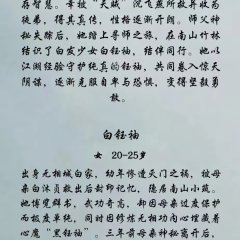 存智慧。幸被“天贼”沈飞燕所救并收为
徒弟，得其真传，性格逐渐开朗。师父神
秘失踪后，她踏上寻师之旅，在南山竹林
结识了白发少女白钰袖，结伴同行。她以
江湖经验守护纯真的钰袖，共同卷入惊天
阴谋，逐渐克服自卑与恐惧，变得坚毅勇
敢。
白钰袖
女 20-25岁
出身无相城白家，幼年惨遭灭门之祸，被母
亲白沐贞救出后封印记忆，隐居南山小筑。
她博览群书，武功奇高，却因母亲过度保护
而极度单纯，同时因修炼无相功内心埋藏着
心魔“黑钰袖”。三年前母亲神秘离开后，